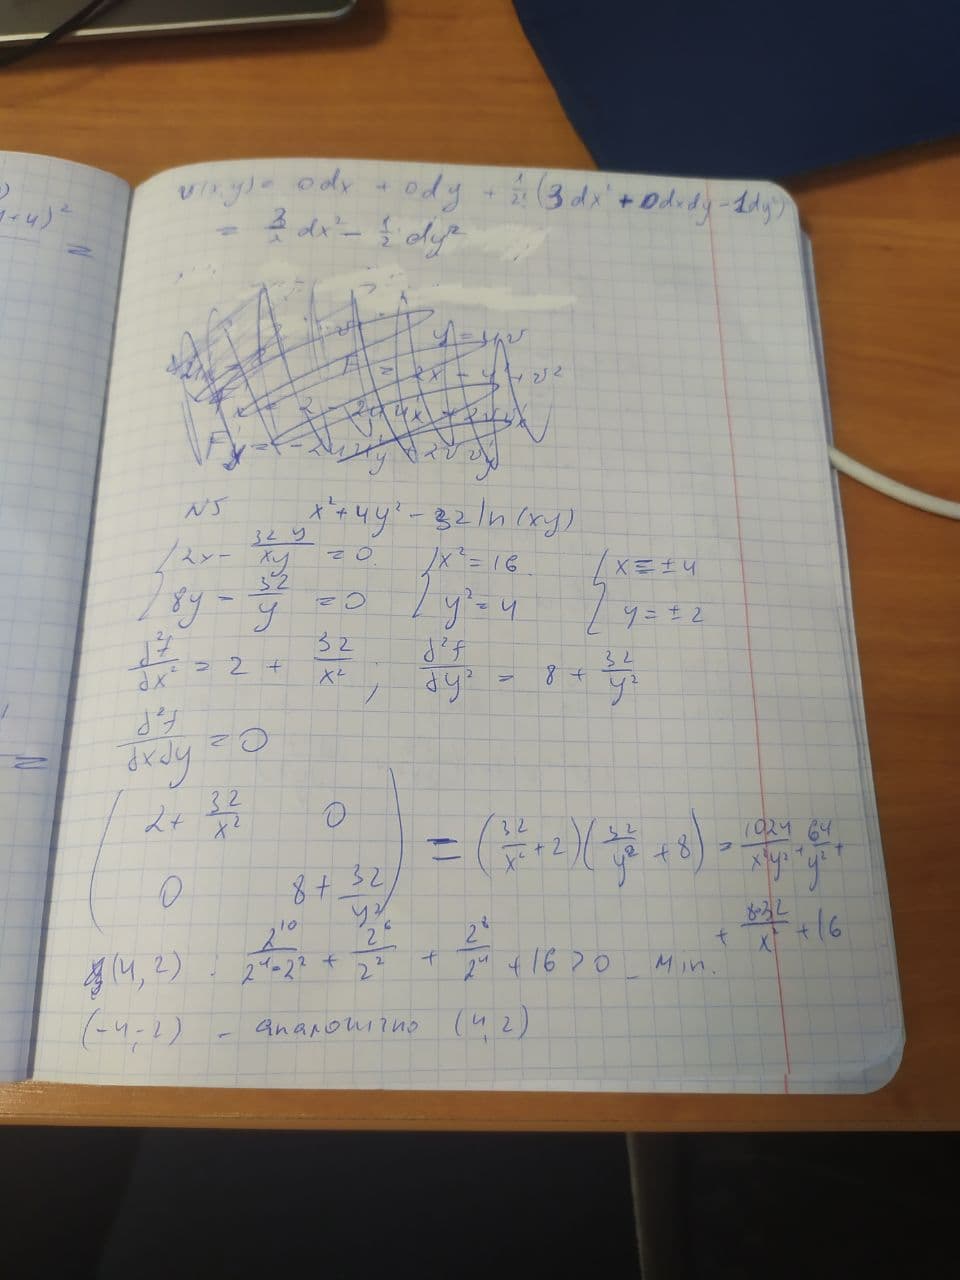 +4)²
=
v(x,y) = 0dx + 0dy + 1/2! (3dx² + 0dxdy - 1dy²)
= 3/2 dx² - 1/2 dy²
y = uv
= 2x - y² + v²
N5 x² + 4y² - 32 ln(xy)
{ 2x - 32y/xy = 0 { x² = 16 { x = ±4
{ 8y - 32/y = 0 { y² = 4 { y = ±2
d²f/dx² = 2 + 32/x² ; d²f/dy² = 8 + 32/y²
d²f/dxdy = 0
=
( 2 + 32/x² 0
0 8 + 32/y² ) = (32/x² + 2)(32/y² + 8) = 1024/x²y² + 64/y² +
+ 8·32/x² + 16
(4, 2) : 2¹⁰/2⁴·2² + 2⁶/2² + 2⁸/2⁴ + 16 > 0 - min.
(-4, -2) - аналогично (4, 2)